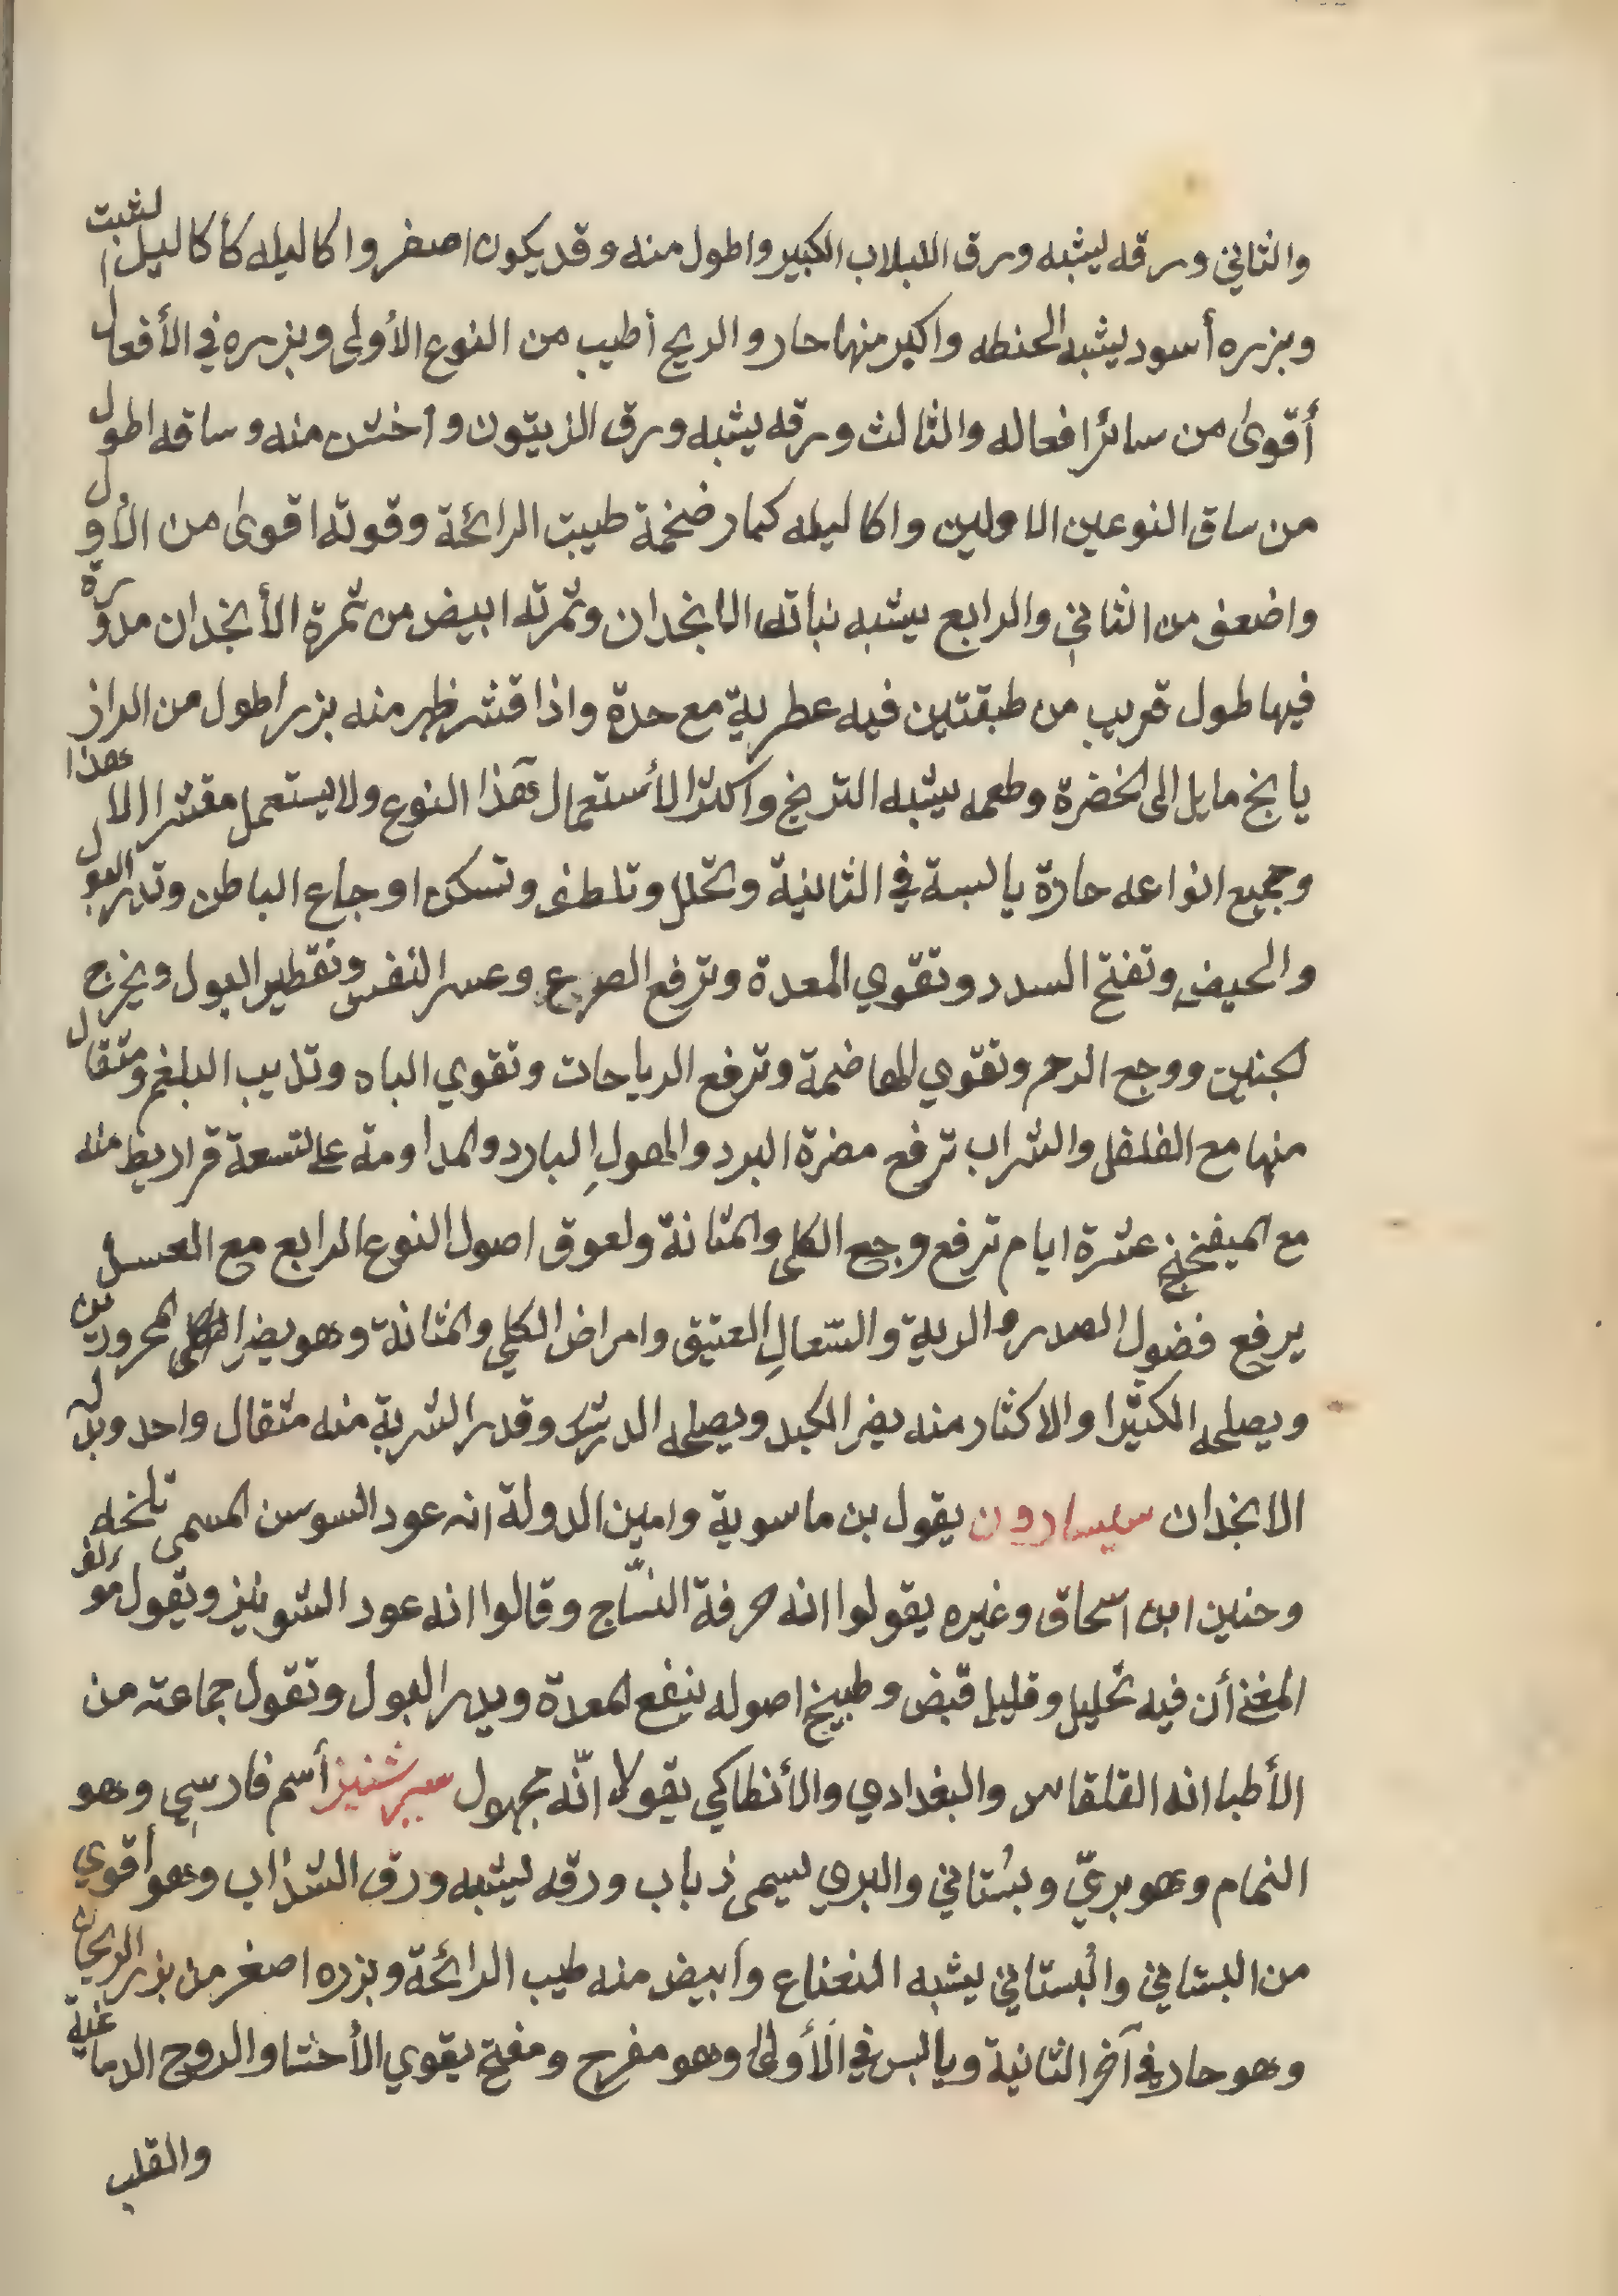 والثاني ورقه يشبه ورق اللبلاب الكبير واطول منه وقد يكون اصغر واكاليله كأكاليل الشبت
وبزره أسود يشبه الحنطه واكبر منها حار والريح أطيب من النوع الأولى وبزره في الأفعال
أقوى من سائر افعاله والثالث ورقه يشبه ورق الزيتون واخشن منه وساقه اطول
من ساق النوعين الاولين واكاليله كبار ضخمة طيبت الرائحة وقوته اقوى من الأول
واضعف من الثاني والرابع يشبه نباته الانجدان وثمرته ابيض من ثمرة الأنجدان مدورة
فيها طول قريب من طبقتين فيه عطرية مع حدة واذا قشر ظهر منه بزر اطول من الراز
يانج مايل الى الخضرة وطعمه يشبه الترنج واكثر الأستعمال لهذا النوع ولا يستعمل مقشرا الا هذا
وجميع انواعه حارة يابسة في الثانية وتحلل وتلطف وتسكن اوجاع الباطن وتدر البول
والحيض وتفتح السدد وتقوي المعدة وترفع الصرع وعسر النفس وتقطير البول ويخرج
لجنين ووجع الرحم وتقوي الهاضمة وترفع الرياحات وتقوي الباه وتذيب البلغم ومثقال
منها مع الفلفل والشراب ترفع مضرة البرد والهول البارد والمداومة على تسعة قراريط منه
مع الميفنخج عشرة ايام ترفع وجع الكلى والمثانة ولعوق اصول النوع الرابع مع العسل
يرفع فضول الصدر والرية والسّعال العتيق وامراض الكلي والمثانة وهو يضر المحرورين
ويصلحه الكثيرا والاكثار منه يضر الكبد ويصلحه الزرشك وقدر الشربة منه مثقال واحد وبدله
الانجدان سيسارون يقول بن ماسوية وامين الدولة انه عود السوسن المسمى تلخه
وحنين ابن اسحاق وغيره يقولوا انه حرفة النسّاج وقالوا انه عود الشونيز ويقول مؤلف
المغني أن فيه تحليل وقليل قبض وطبيخ اصوله ينفع المعدة ويدر البول وتقول جماعته من
الأطبا انه القلقاس والبغدادي والأنطاكي يقولا انّه مجهول سيرشنيز أسم فارسي وهو
النمام وهو بريّ وبستاني والبري يسمى ذباب ورقه يشبه ورق الشذاب وهو أقوي
من البستاني والبستاني يشبه النعناع وابيض منه طيب الرائحة وبزره اصغر من بزر الريحان
وهو حار في آخر الثانية ويابس في الأولى وهو مفرح ومفتح يقوي الأحشا والروح الدماغية
والقلب